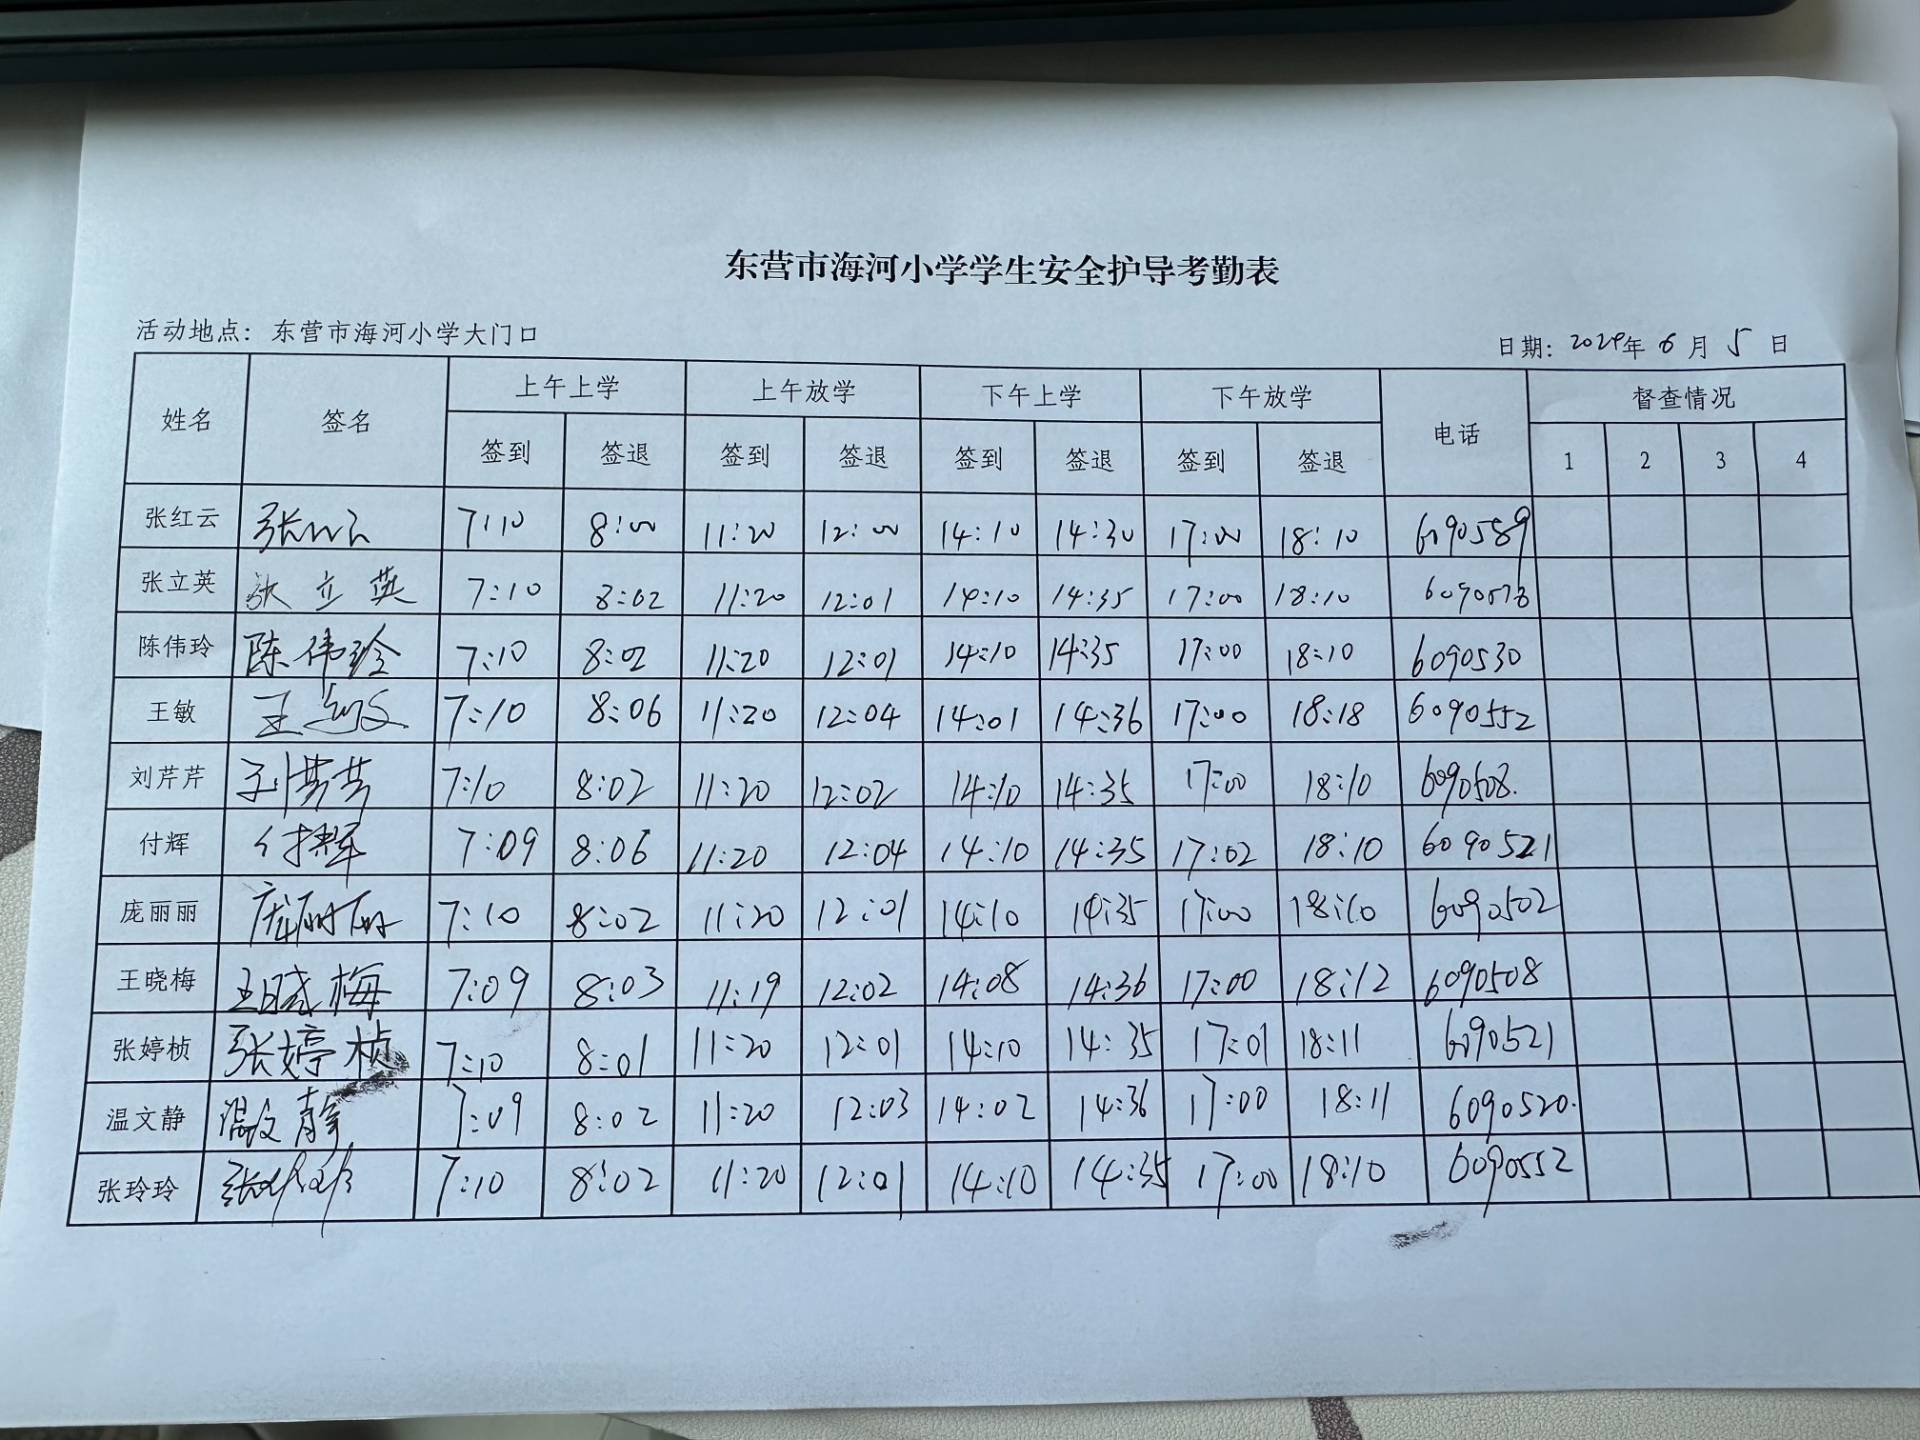 东营市海河小学学生安全护导考勤表
活动地点：东营市海河小学大门口 日期：2024年 6 月 5 日
姓名 签名 上午上学 上午放学 下午上学 下午放学 电话 督查情况
签到 签退 签到 签退 签到 签退 签到 签退 1 2 3 4
张红云 张红云 7:10 8:00 11:20 12:00 14:10 14:30 17:00 18:10 6090589
张立英 张立英 7:10 8:02 11:20 12:01 14:10 14:35 17:00 18:10
陈伟玲 陈伟玲 7:10 8:02 11:20 12:01 14:10 14:35 17:00 18:10 6090530
王敏 王敏 7:10 8:06 11:20 12:04 14:01 14:36 17:00 18:18 6090552
刘芹芹 刘芹芹 7:10 8:02 11:20 12:02 14:10 14:35 17:00 18:10 6090508.
付辉 付辉 7:09 8:06 11:20 12:04 14:10 14:35 17:02 18:10 6090521
庞丽丽 庞丽丽 7:10 8:02 11:20 12:01 14:10 14:35 17:00 18:10 6090502
王晓梅 王晓梅 7:09 8:03 11:19 12:02 14:08 14:36 17:00 18:12 6090508
张婷桢 张婷桢 7:10 8:01 11:20 12:01 14:10 14:35 17:01 18:11 6090521
温文静 温文静 7:09 8:02 11:20 12:03 14:02 14:36 17:00 18:11 6090520.
张玲玲 张玲玲 7:10 8:02 11:20 12:01 14:10 14:35 17:00 18:10 6090552